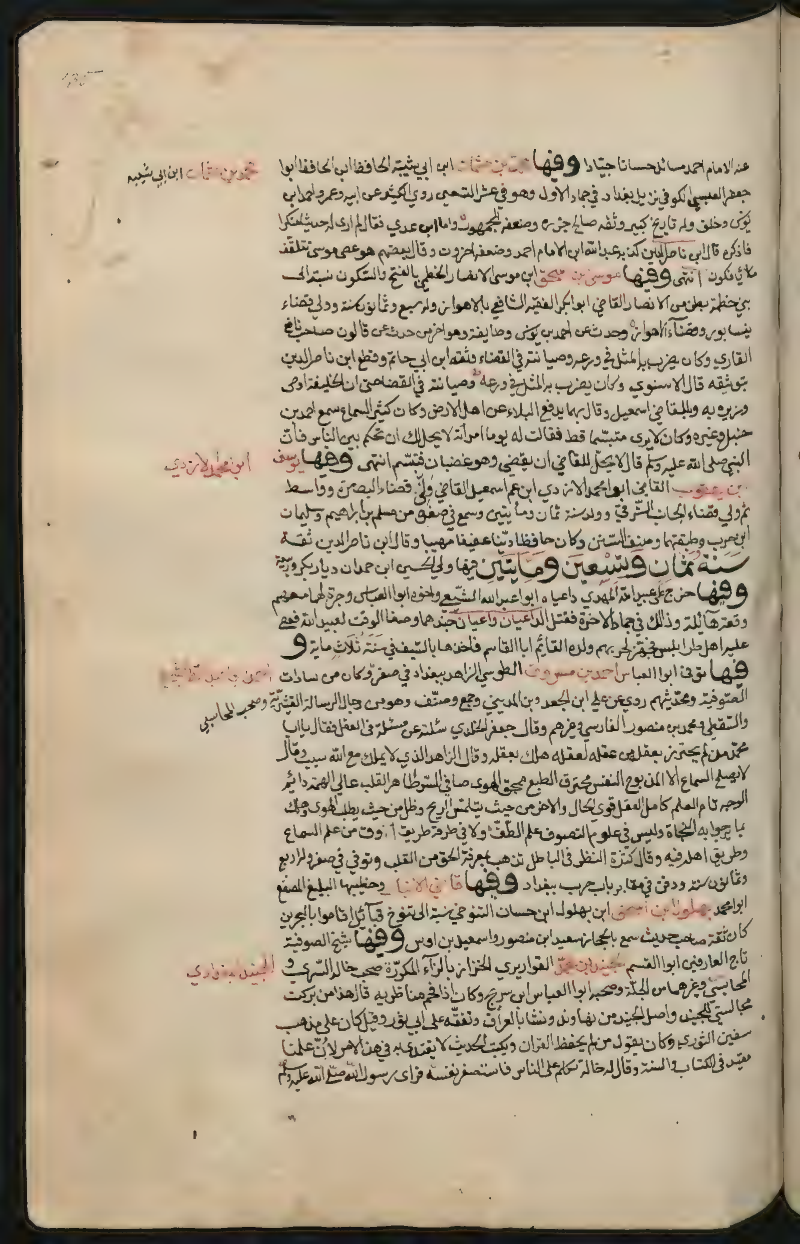 عنه الامام احمد مسائل حسانا جيادا وفيها محمد بن عثمان ابن ابي شيبة الحافظ ابن الحافظ ابوا
محمد بن عثمان ابن ابي شيبه
جعفر العبسي الكوفي نزيل بغداد في جماد الاول وهو في عشر التسعين روي الكثير عن ابيه وعمه واحمد ابن
يونس وخلق وله تاريخ كبير وثقه صالح جزره وضعفه الجمهور واما ابن عدي فقال لم ار له حديثا منكرا
فاذكره قال ابن ناصر الدين كذبه عبد الله ابن الامام احمد وضعفه اخرون وقال بعضهم هو عصى موسى تتلقف
ما يأفكون انتهى وفيها موسى بن اسحق ابن موسى الانصار الخطمي بالفتح والسكون نسبة الى
بني خطمة بطن من الانصار القاضي ابوا بكر الفقيه الشافعي بالاهواز وله سبع وثمانون سنة وولي قضاء
نيسابور وقضاء الاهواز وحدث عن احمد بن يونس وطايفة وهو اخر من حدث عن قالون صاحب نافع
القاري وكان يضرب به المثل في ورعه وصيانته في القضاء وثقه ابن ابي حاتم وقطع ابن ناصر الدين
بتوثيقه قال الاسنوي وكان يضرب به المثل في ورعه وصيانته في القضا حتى ان الخليفة اوصى
وزيره به وبالقاضي اسمعيل وقال بهما يدفع البلاء عن اهل الارض وكان كثير السماع سمع احمد بن
حنبل وغيره وكان لا يرى متبسما قط فقالت له يوما امرأة لا يحل لك ان تحكم بين الناس فان
النبي صلى الله عليه وسلم قال لا يحل للقاضي ان يقضي وهو غضبان فتبسم انتهى وفيها يوسف
ابن محمد الازدي
بن يعقوب القاضي ابوا محمد الازدي ابن عم اسمعيل القاضي ولي قضاء البصرة وواسط
ثم ولي قضاء الجانب الشرقي وولد سنة ثمان ومايتين وسمع في صغره من مسلم بن ابراهيم وسليمان
ابن حرب وطبقتهما وصنف السنن وكان حافظا دينا عفيفا مهيبا وقال ابن ناصر الدين ثقة
سنة ثمان وتسعين ومايتين فيها ولي الحسين ابن حمدان ديار بكر وربيعة
وفيها خرج على عبيد الله المهدي داعياه ابوا عبد الله الشيعي واخوه ابوا العباس وجرة لهما معهم
وقعة هايلة وذلك في جماد الاخرة فقتل الداعيان واعيان جندهما وصفا الوقت لعبيد الله فعصى
عليه اهل طرابلس فجهز لحربهم ولده القائم ابا القاسم فاخذها بالسيف في سنة ثلاث ماية و
فيها توفى ابوا العباس احمد بن مسروق الطوسي الزاهد ببغداد في صفر وكان من سادات
الصوفية ومحدثيهم روي عن علي ابن الجعد وبن المديني وجمع وصنف وهو من رجال الرسالة القشيرية وصحب المحاسبي
والسقطي ومحمد بن منصور الفارسي وغيرهم وقال جعفر الخلدي سئلته عن مسئلة في العقل فقال يا ابا
محمد من لم يحترز بعقله من عقله لعقله هلك بعقله وقال الزاهد الذي لا يملك مع الله سبب وقال
لا يصلح السماع الا لمذبوح النفس محترق الطبع ممحق الهوى صافي السر طاهر القلب عالي الهمة دائم
الوجد تام العلم كامل العقل قوي الحال والا خسر من حيث يلتمس الربح وظل من حيث يطلب الهدى وهلك
بما يرجوا به النجاة وليس في علوم التصوف علم الطف ولا في طرقه طريق ادق من علم السماع
وطريق اهله فيه وقال كثرة النظر في الباطل تذهب بمعرفة الحق من القلب وتوفي في صفر وله اربع
وثمانون سنة ودفن في مقابر باب حرب ببغداد وفيها قاضي الانبار وخطيبها البليغ المصقع
ابوا محمد بهلول ابن اسحق ابن بهلول ابن حسان التنوخي نسبة الى تنوخ قبائل اقاموا بالبحرين
كان ثقة صاحب حديث سمع بالحجاز سعيد ابن منصور واسمعيل بن اويس وفيها شيخ الصوفية
تاج العارفين ابوا القسم جنيد ابن محمد القواريري الخزاز بالزآء المكررة صحب خاله السري و
الجنيد البغدادي
المحاسبي وغيرهما من الجلة وصحبه ابوا العباس ابن سريج وكان اذا افحم مناظريه قال هذا من بركت
مجالستي للجنيد واصل الجنيد من نهاوند ونشا بالعراق وتفقه على ابي ثور وقيل كان على مذهب
سفين الثوري وكان يقول من لم يحفظ القران ويكتب الحديث لا يقتدى به في هذا الامر لان علمنا
مقيد في الكتاب والسنة وقال له خاله تكلم على الناس فاستصغر نفسه فراى رسول الله صلى الله عليه وسلم